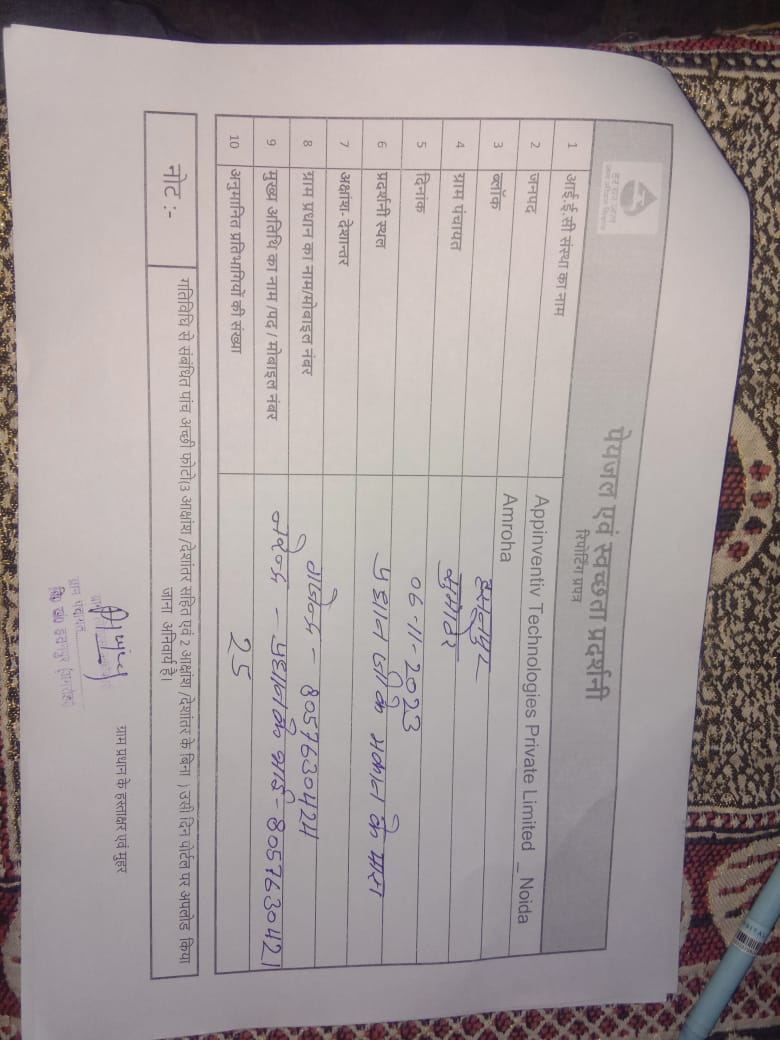 पेयजल एवं स्वच्छता प्रदर्शनी
रिपोर्टिंग प्रपत्र
1 आई.ई.सी संस्था का नाम Appinventiv Technologies Private Limited _ Noida
2 जनपद Amroha
3 ब्लॉक हसनपुर
4 ग्राम पंचायत
5 दिनांक 06-11-2023
6 प्रदर्शनी स्थल प्रधान जी के मकान के पास
7 अक्षांश- देशान्तर
8 ग्राम प्रधान का नाम/मोबाइल नंबर - 8057630424
9 मुख्य अतिथि का नाम /पद / मोबाइल नंबर - प्रधान के भाई - 8057630421
10 अनुमानित प्रतिभागियों की संख्या 25
नोट :- गतिविधि से संबंधित पांच अच्छी फोटो(3 आक्षांश /देशांतर सहित एवं 2 आक्षांश /देशांतर के बिना ) उसी दिन पोर्टल पर अपलोड किया
जाना अनिवार्य है।
ग्राम प्रधान के हस्ताक्षर एवं मुहर
ग्राम पंचायत